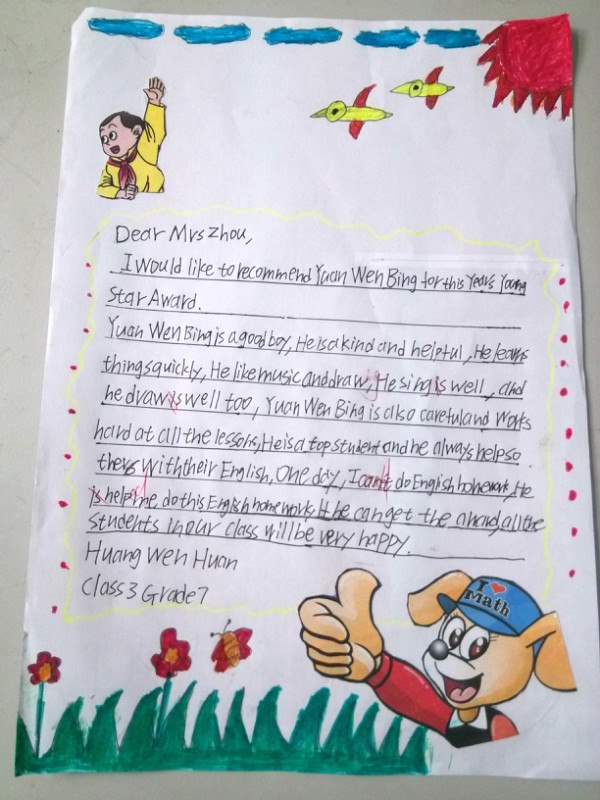 Dear Mrs Zhou,
I would like to recommend Yuan Wen Bing for this Year's Young
Star Award.
Yuan Wen Bing is a good boy, He is a kind and helpful, He learns
things quickly, He like music and drawing, He sings well, and
he draws well too, Yuan Wen Bing is also careful and works
hard at all the lessons, He is a top student and he always helps o
thers with their English, One day, I can't do English homework, He
is help me do this English homework, If he can get the award, all the
students in our class will be very happy.
Huang Wen Huan
Class 3 Grade 7
I ❤ Math